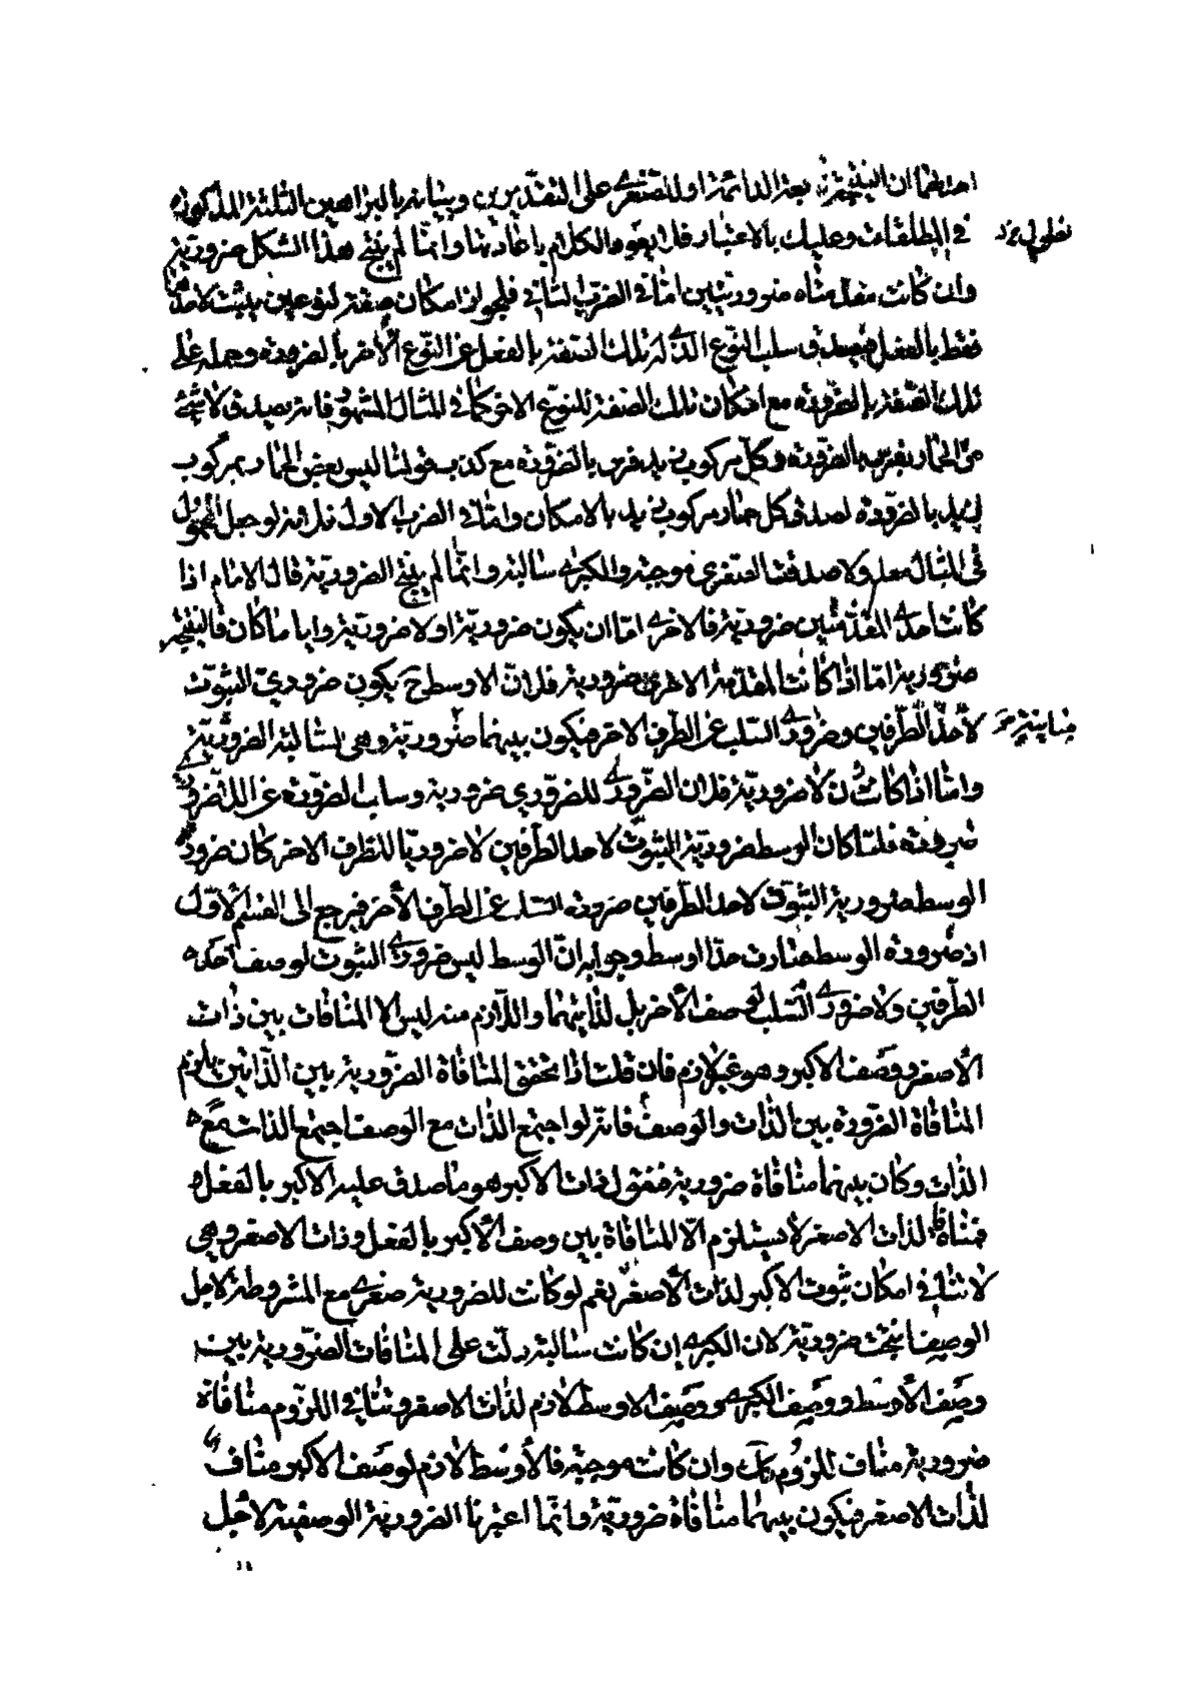 احديهما ان النتيجة تابعة الدائمة او للصغرى على التقديرين وبيانه بالبراهين الثلثة المذكورة
في المطلقات وعليك بالاعتبار فلا يعوم الكلام باعادتها وانما لم ينتج هذا الشكل ضرورية
وان كانت مقدمتاه ضروريتين اما في الضرب الثاني فلجواز امكان صفة لنوعين يثبت لاحدهما
فقط بالفعل فيصدق سلب النوع الذي له تلك الصفة بالفعل عن النوع الاخر بالضرورة وحمله على
تلك الصفة بالضرورة مع امكان تلك الصفة للنوع الاخر كما في المثال المشهور فانه يصدق لا شئ
من الحمار بفرس بالضرورة وكل مركوب زيد فرس بالضرورة مع كذب قولنا ليس بعض الحمار بمركوب
زيد بالضرورة لصدق كل حمار مركوب زيد بالامكان واما في الضرب الاول فلانه لو جعل المحمول
في المثال معدولا صدقت الصغرى موجبة والكبرى سالبة وانما لم ينتج الضرورية قال الامام اذا
كانت احدى المقدمتين ضرورية فالاخرى اما ان يكون ضرورية او لا ضرورية وايا ما كان فالنتيجة
ضرورية اما اذا كانت المقدمة الاخرى ضرورية فلان الاوسط ح يكون ضروري الثبوت
لاحد الطرفين وضروري السلب عن الطرف الاخر فيكون بينهما ضرورية وهي السالبة الضرورية
واما اذا كانت لا ضرورية فلان الضروري للضروري ضرورية وسلب الضرورة عن اللاضروري
ضرورة فلما كان الوسط ضرورية الثبوت لاحد الطرفين لا ضروريا للطرف الاخر كان ضرورة
الوسط ضرورية الثبوت لاحد الطرفين ضرورة السلب عن الطرف الاخر فيرجع الى القسم الاول
اذ ضرورة الوسط صارت حدا اوسط وجوابه ان الوسط ليس ضروري الثبوت لوصف احد
الطرفين ولا ضروري السلب لوصف الاخر بل لذاتيهما واللازم منه ليس الا المنافات بين ذات
الاصغر ووصف الاكبر وهو غير لازم فان قلت اذا تحقق المنافاة الضرورية بين الذاتين يلزم
المنافاة الضرورة بين الذات والوصف فانه لو اجتمع الذات مع الوصف اجتمع الذات مع
الذات وكان بينهما منافاة ضرورية فنقول ذات الاكبر هو ما صدق عليه الاكبر بالفعل
فمنافاة لذات الاصغر لا يستلزم الا المنافاة بين وصف الاكبر بالفعل وذات الاصغر وهي
لا تنافي امكان ثبوت الاكبر لذات الاصغر نعم لو كانت للضرورية صغرى مع المشروطة لاجل
الوصف انتجت ضرورية لان الكبرى ان كانت سالبة دلت على المنافات الضرورية بين
وصف الاوسط ووصف الكبرى ووصف الاوسط لازم لذات الاصغر وتنافي اللزوم منافاة
ضرورية مناف للزوم كك وان كانت موجبة فالاوسط لازم لوصف الاكبر مناف
لذات الاصغر فيكون بينهما منافاة ضرورية وانما اعتبرنا الضرورية الوصفية لاجل